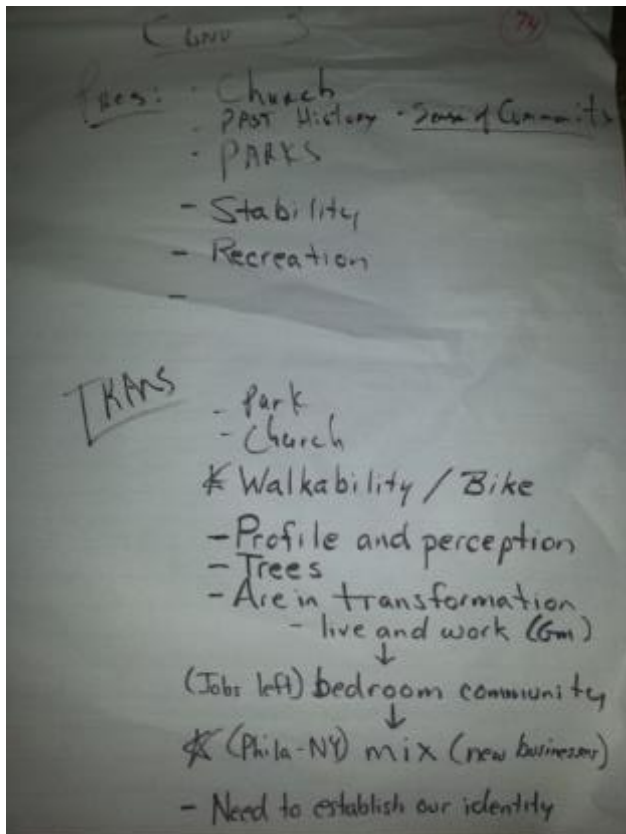 GNV 74
Pres: · Church
- PAST History · Sense of Community
· PARKS
- Stability
- Recreation
-
TRANS
- Park
- Church
* Walkability / Bike
- Profile and perception
- Trees
- Are in transformation
- live and work (Gm)
↓
(Jobs left) bedroom community
↓
* (Phila-NY) mix (new businesses)
- Need to establish our identity